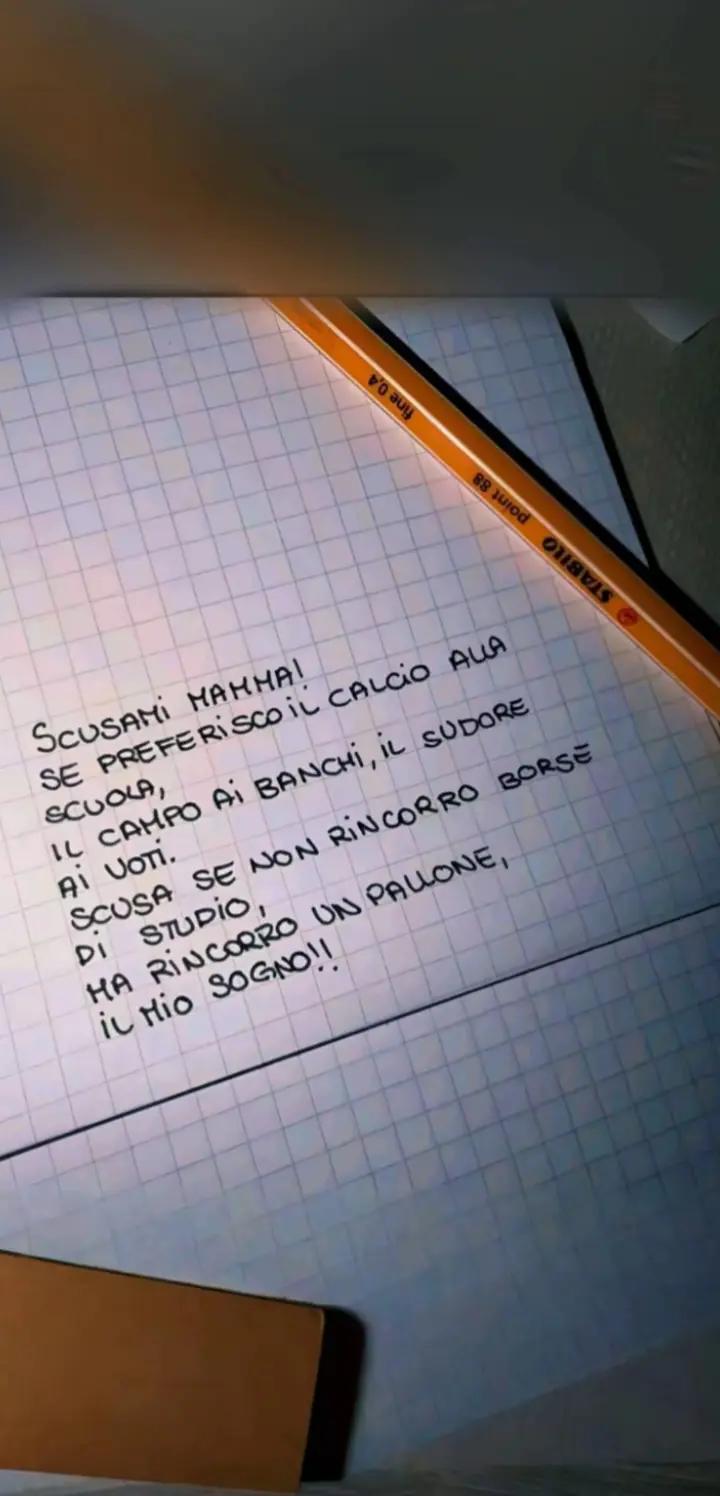 fine 0,4
point 88
STABILO
SCUSAMi MAMMA!
SE PREFERiSCO iL CALCiO ALLA
SCUOLA,
IL CAMPO Ai BANCHi, iL SUDORE
Ai VOTi.
SCUSA SE NON RiNCORRO BORSE
Di STUDIO,
MA RiNCORRO UN PALLONE,
iL MiO SOGNO!!